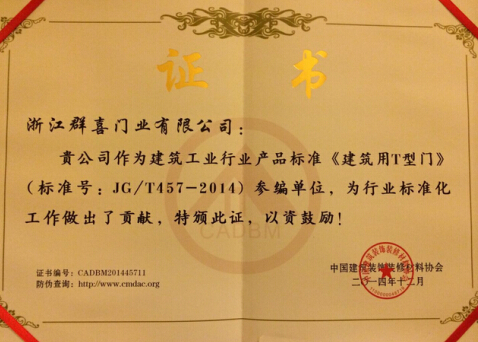 证书
浙江群喜门业有限公司：
贵公司作为建筑工业行业产品标准《建筑用T型门》
（标准号：JG/T457-2014）参编单位，为行业标准化
工作做出了贡献，特颁此证，以资鼓励！
CADBM
中国建筑装饰装修材料协会
二〇一四年十二月
证书编号：CADBM201445711
防伪查询：http://www.cmdac.org